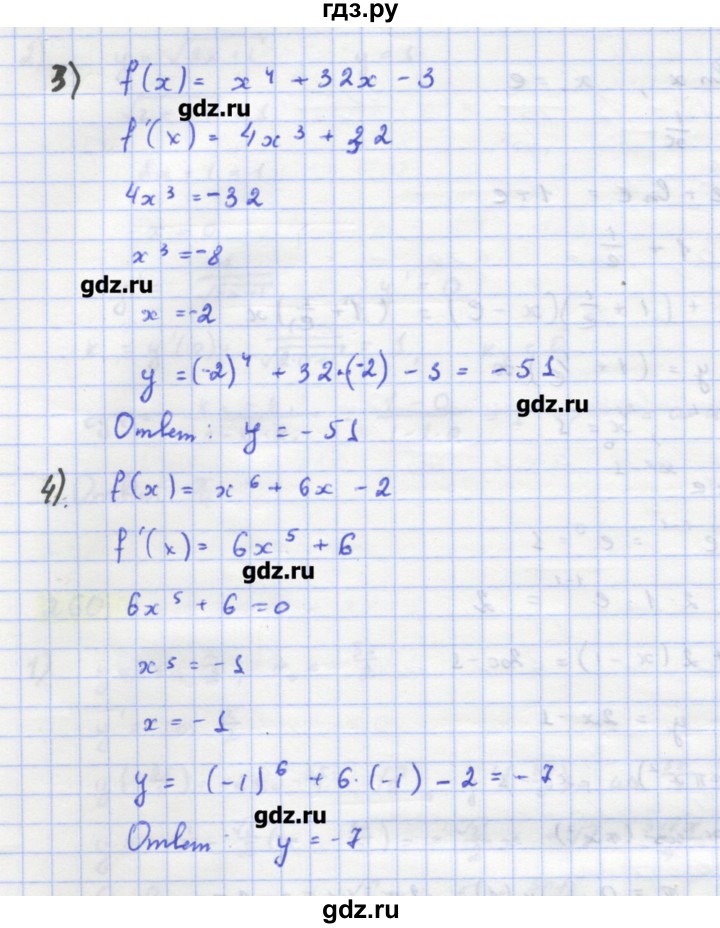 гдз.ру
3) f(x) = x⁴ + 32x - 3
gdz.ru
f'(x) = 4x³ + 32
4x³ = -32
x³ = -8
gdz.ru
x = -2
y = (-2)⁴ + 32·(-2) - 3 = -51
gdz.ru
Ответ: y = -51
4). f(x) = x⁶ + 6x - 2
f'(x) = 6x⁵ + 6
gdz.ru
6x⁵ + 6 = 0
x⁵ = -1
x = -1
y = (-1)⁶ + 6·(-1) - 2 = -7
gdz.ru
Ответ: y = -7
gdz.ru